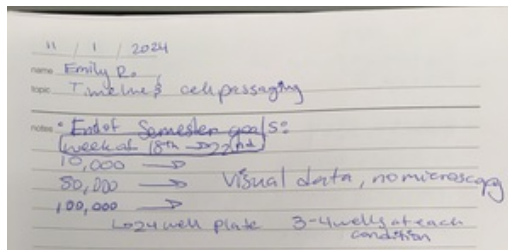 11 / 1 / 2024
name Emily R.
topic Timeline & cell passaging
notes • End of Semester goals:
week of 18th → 22nd
10,000 →
50,000 → Visual data, no microscopy
100,000
↳ 24 well plate 3-4 wells at each
condition